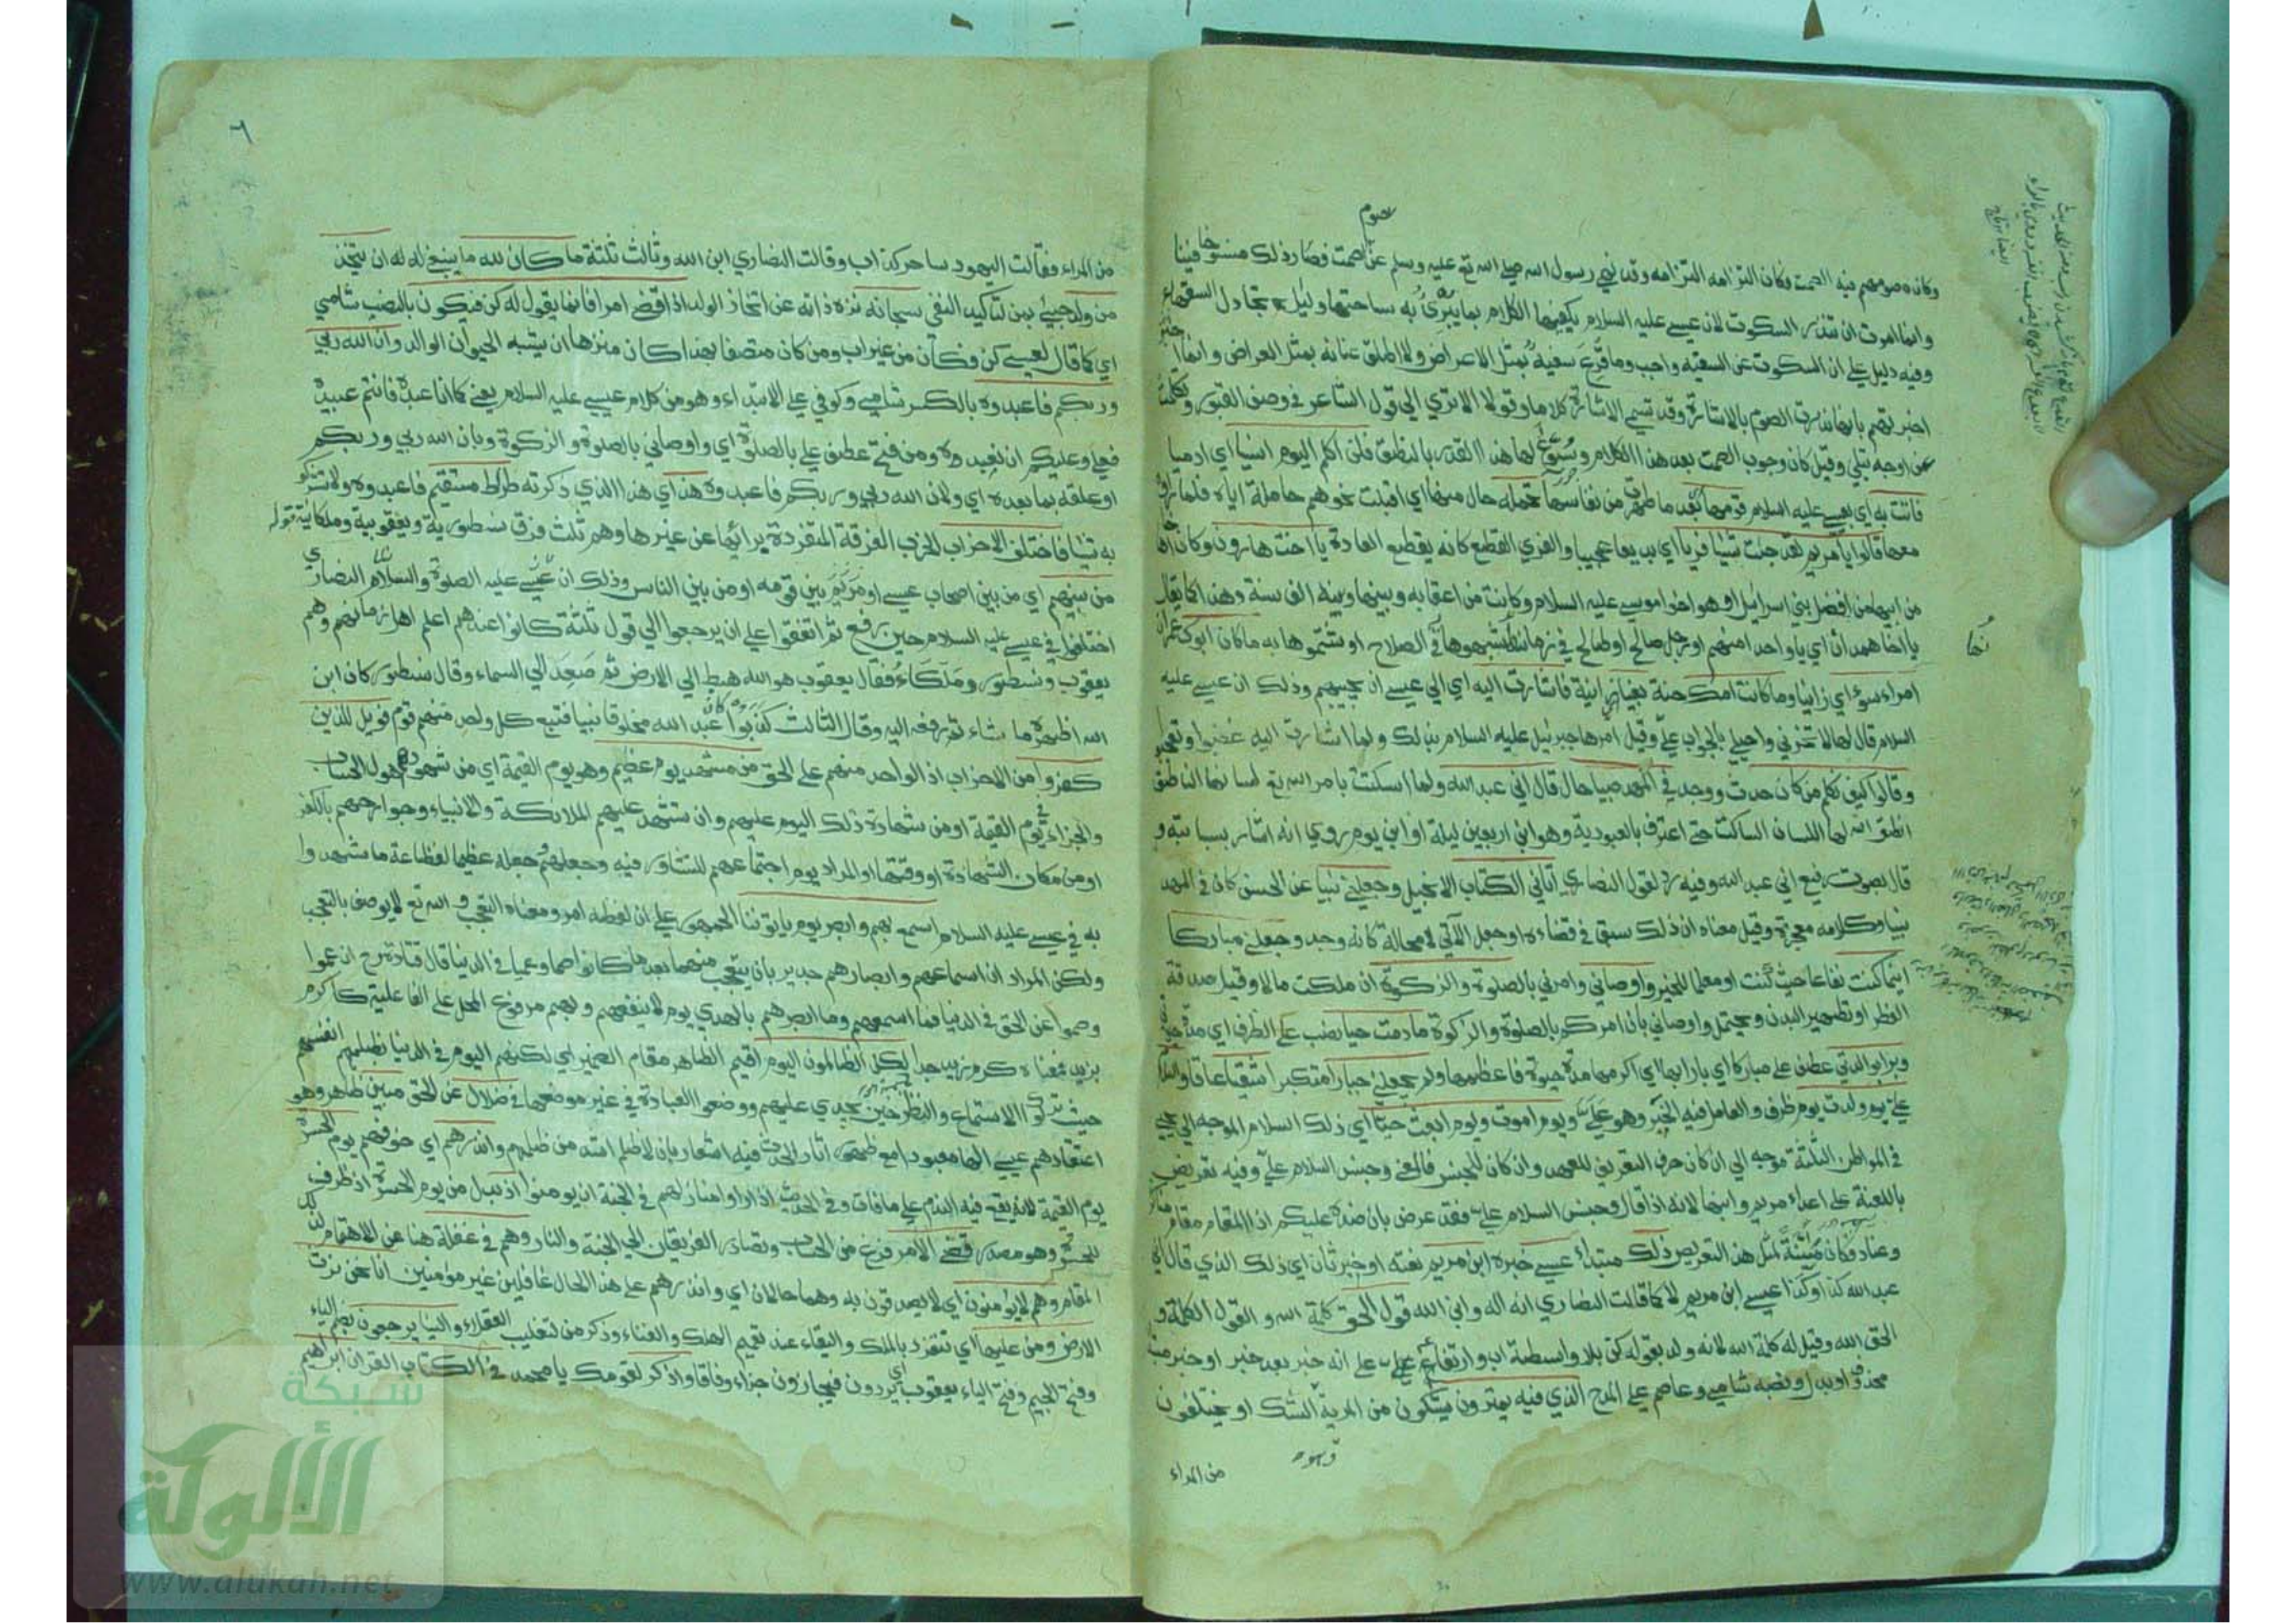 صوم
وكان صومهم فيه الصمت فكان التزامه التزامه وقد نهي رسول الله صلي الله تع عليه وسلم عن الصمت فصار ذلك منسوخا فينا
وانما امرت ان تنذر السكوت لان عيسي عليه السلام يكفيها الكلام بما يبرئ به ساحتها وليلا تجادل السفهاء
وفيه دليل علي ان السكوت عن السفيه واجب وما قرع سفيه بمثل الاعراض ولا اطلق عنانه بمثل العراض وانما
اخبرتهم بانها نذرت الصوم بالاشارة وقد تسمي الاشارة كلاما وقولا الا تري الي قول الشاعر في وصف القبور وتكلمت
عن اوجه تبلي وقيل كان وجوب الصمت بعد هذا الكلام وسوغ لها هذا القدر بالنطق فلن اكلم اليوم انسيا اي ادميا
فاتت به اي بعيسي عليه السلام قومها بعد ما طهرت من نفاسها تحمله حال منها اي اقبلت نحوهم حاملة اياه فلما راوه
معها قالوا يا مريم لقد جئت شيئا فريا اي بديعا عجيبا والفري القطع كانه يقطع العادة يا اخت هارون وكان اخاها
من ابيها من افضل بني اسرائيل او هو اخو موسي عليه السلام وكانت من اعقابه وبينهما وبينه الف سنة وهذا كما يقال
يا اخا همدان اي يا واحدا منهم او رجل صالح او طالح في زمانها شبهوها في الصلاح او شتموها به ما كان ابوك عمران
امراء سوء اي زانيا وما كانت امك حنة بغيا زانية فاشارت اليه اي الي عيسي ان يجيبهم وذلك ان عيسي عليه
السلام قال لها لا تحزني واحيلي بالجواب علي وقيل امرها جبرئيل عليه السلام بذلك ولما اشارت اليه غضبوا وتعجبوا
وقالوا كيف نكلم من كان حدث ووجد في المهد صبيا حال قال اني عبد الله ولما اسكتت بامر الله تع لسانها الناطق
انطق الله لها اللسان الساكت حتي اعترف بالعبودية وهو ابن اربعين ليلة او ابن يوم روي انه اشار بسبابته و
قال بصوت رفيع اني عبد الله وفيه رد لقول النصاري اتاني الكتاب الانجيل وجعلني نبيا عن الحسن كان في المهد
نبيا وكلامه معجزته وقيل معناه ان ذلك سبق في قضاءه او جعل الآتي لا محالة كانه وجد وجعلني مباركا
اينما كنت نفاعا حيث كنت او معلما للخير واوصاني وامرني بالصلوة والزكوة ان ملكت مالا وقيل صدقة
الفطر او تطهير البدن ويحتمل واوصاني بان امركم بالصلوة والزكوة ما دمت حيا نصب علي الظرف اي مدة حيوتي
وبرا بوالدتي عطف علي مباركا اي بارا بها اي اكرمها مدة حيوة فاعظمها ولم يجعلني جبارا متكبرا شقيا عاقا والسلام
علي يوم ولدت يوم ظرف والعامل فيه الخبر وهو علي ويوم اموت ويوم ابعث حيا اي ذلك السلام الموجه الي يحيي
في المواطن الثلثة موجه الي ان كان حرف التعريف للعهد وان كان للجنس فالمعني وجنس السلام علي وفيه تعريض
باللعنة علي اعداء مريم وابنها لانه اذا قال وجنس السلام علي فقد عرض بان ضده عليكم اذ المقام مقام
وعناد فكان مئنة لمثل هذا التعريض ذلك مبتداء عيسي خبره ابن مريم نعته او خبر ثان اي ذلك الذي قال اني
عبد الله كذا وكذا عيسي ابن مريم لا كما قالت النصاري انه اله وابن الله قول الحق كلمة الله والقول الكلمة و
الحق الله وقيل له كلمة الله لانه ولد بقوله كن بلا واسطة اب وارتفاعه علي انه خبر بعد خبر او خبر مبتدا
محذوف او بدل ونصبه شامي وعاصم علي المدح الذي فيه يمترون يشكون من المرية الشك او يختلفون
من المراء
٦
من المراء فقالت اليهود ساحر كذاب وقالت النصاري ابن الله وثالث ثلثة ما كان لله ما ينبغي له ان يتخذ
من ولد جيئ بمن لتاكيد النفي سبحانه نزه ذاته عن اتخاذ الولد اذا قضي امرا فانما يقول له كن فيكون بالنصب شامي
اي كما قال لعيسي كن فكان من غير اب ومن كان متصفا بهذا كان منزها ان يشبه الحيوان الوالد وان الله ربي
وربكم فاعبدوه بالكسر شامي وكوفي علي الابتداء وهو من كلام عيسي عليه السلام يعني كما انا عبده فانتم عبيده
فعلي وعليكم ان نعبده ومن فتح عطف علي بالصلوة اي واوصاني بالصلوة والزكوة وبان الله ربي وربكم
او علقه بما بعده اي ولان الله ربي وربكم فاعبدوه هذا اي هذا الذي ذكرته صراط مستقيم فاعبدوه ولا تشركوا
به شيئا فاختلف الاحزاب الحزب الفرقة المنفردة برائها عن غيرها وهم ثلث فرق نسطورية ويعقوبية وملكائية
من بينهم اي من بين اصحاب عيسي او من بين قومه او من بين الناس وذلك ان عيسي عليه الصلوة والسلام النصاري
اختلفوا في عيسي عليه السلام حين رفع ثم اتفقوا علي ان يرجعوا الي قول ثلثة كانوا عندهم اعلم اهل زمانهم وهم
يعقوب ونسطور وملكاء فقال يعقوب هو الله هبط الي الارض ثم صعد الي السماء وقال نسطور كان ابن
الله اظهره ما شاء ثم رفعه اليه وقال الثالث كذبوا كان عبد الله مخلوقا نبيا فتبع كل واحد منهم قوم فويل للذين
كفروا من الاحزاب اذ الواحد منهم علي الحق من مشهد يوم عظيم وهو يوم القيمة اي من شهودهم هول الحساب
والجزاء في يوم القيمة او من شهادة ذلك اليوم عليهم وان تشهد عليهم الملائكة والانبياء وجوارحهم بالكفر
او من مكان الشهادة او وقتها او المراد يوم اجتماعهم للتشاور فيه وجعله عظيما لفظاعة ما شهدوا
به في عيسي عليه السلام اسمع بهم وابصر يوم ياتوننا الجمهور علي ان لفظه امر ومعناه التعجب والله تع لا يوصف بالتعجب
ولكن المراد ان اسماعهم وابصارهم جدير بان يتعجب منهما بعد ما كانوا صما وعميا في الدنيا قال قتادة رح ان عموا
وصموا عن الحق في الدنيا فما اسمعهم وما ابصرهم بالهدي يوم لا ينفعهم وبهم مرفوع المحل علي الفاعلية كاكرم
بزيد فمعناه كرم زيد جدا لكن الظالمون اليوم اقيم الظاهر مقام الضمير اي لكنهم اليوم في الدنيا بظلمهم انفسهم
حيث تركوا الاستماع والنظر حين يجدي عليهم ووضعوا العبادة في غير موضعها في ضلال عن الحق مبين ظاهر وهو
اعتقادهم عيسي الها معبودا مع ظهور اثار الحدث فيه اشعار بان لا ظلم اشد من ظلمهم وانذرهم اي خوفهم يوم الحسرة
يوم القيمة لانه يقع فيه الندم علي ما فات وفي الحديث اذا راوا منازلهم في الجنة ان يومنوا اذ بدل من يوم الحسرة او ظرف
للحسرة وهو مصدر قضي الامر فرغ من الحساب وتصادر الفريقان الي الجنة والنار وهم في غفلة هنا عن الاهتمام لذلك
المقام وهم لا يؤمنون اي لا يصدقون به وهما حالان اي وانذرهم علي هذا الحال غافلين غير مؤمنين انا نحن نرث
الارض ومن عليها اي نتفرد بالملك والبقاء عند تعميم الهلك والفناء وذكر من لتغليب العقلاء والينا يرجعون بضم الياء
وفتح الجيم وفتح الياء يعقوب اي يردون فيجازون جزاء وفاقا واذكر لقومك يا محمد في الكتاب القران ابراهيم
شبكة
الألوكة
www.alukah.net